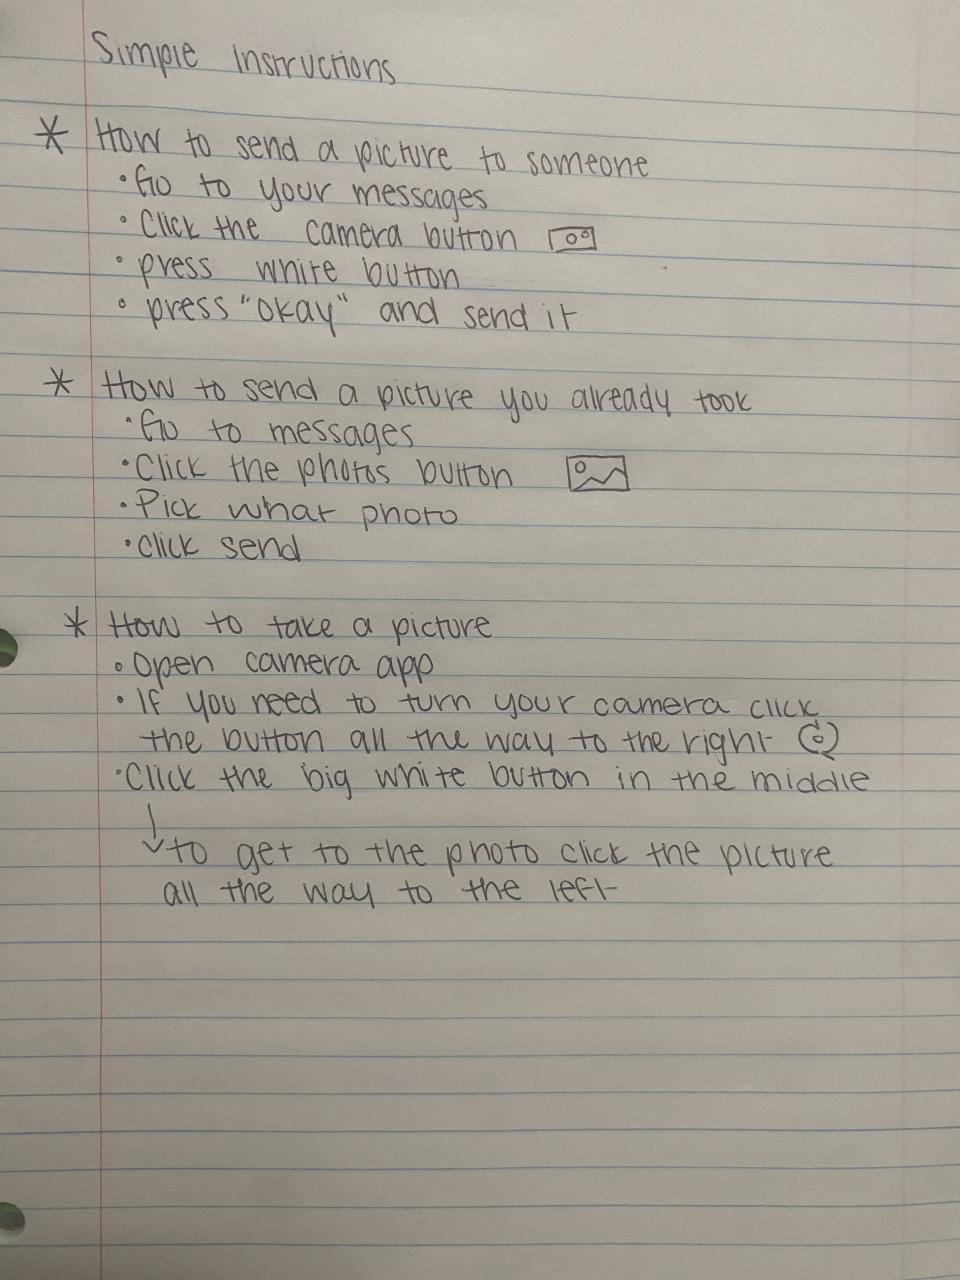 Simple Instructions
* How to send a picture to someone
• Go to your messages
• Click the camera button
• press white button
• press "okay" and send it
* How to send a picture you already took
• Go to messages
• Click the photos button
• Pick what photo
• click send
* How to take a picture
• Open camera app
• If you need to turn your camera click
the button all the way to the right
• Click the big white button in the middle
↓ to get to the photo click the picture
all the way to the left